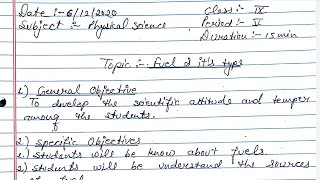 Date :- 6/12/2020 Class :- IX
Subject :- Physical Science Period :- V
Duration :- 15 min
Topic :- Fuel & it's type
1.) General Objective
To develop the scientific attitude and temper
among the students.
2.) Specific Objectives
1.) Students will be know about fuels.
2.) Students will be understand the sources